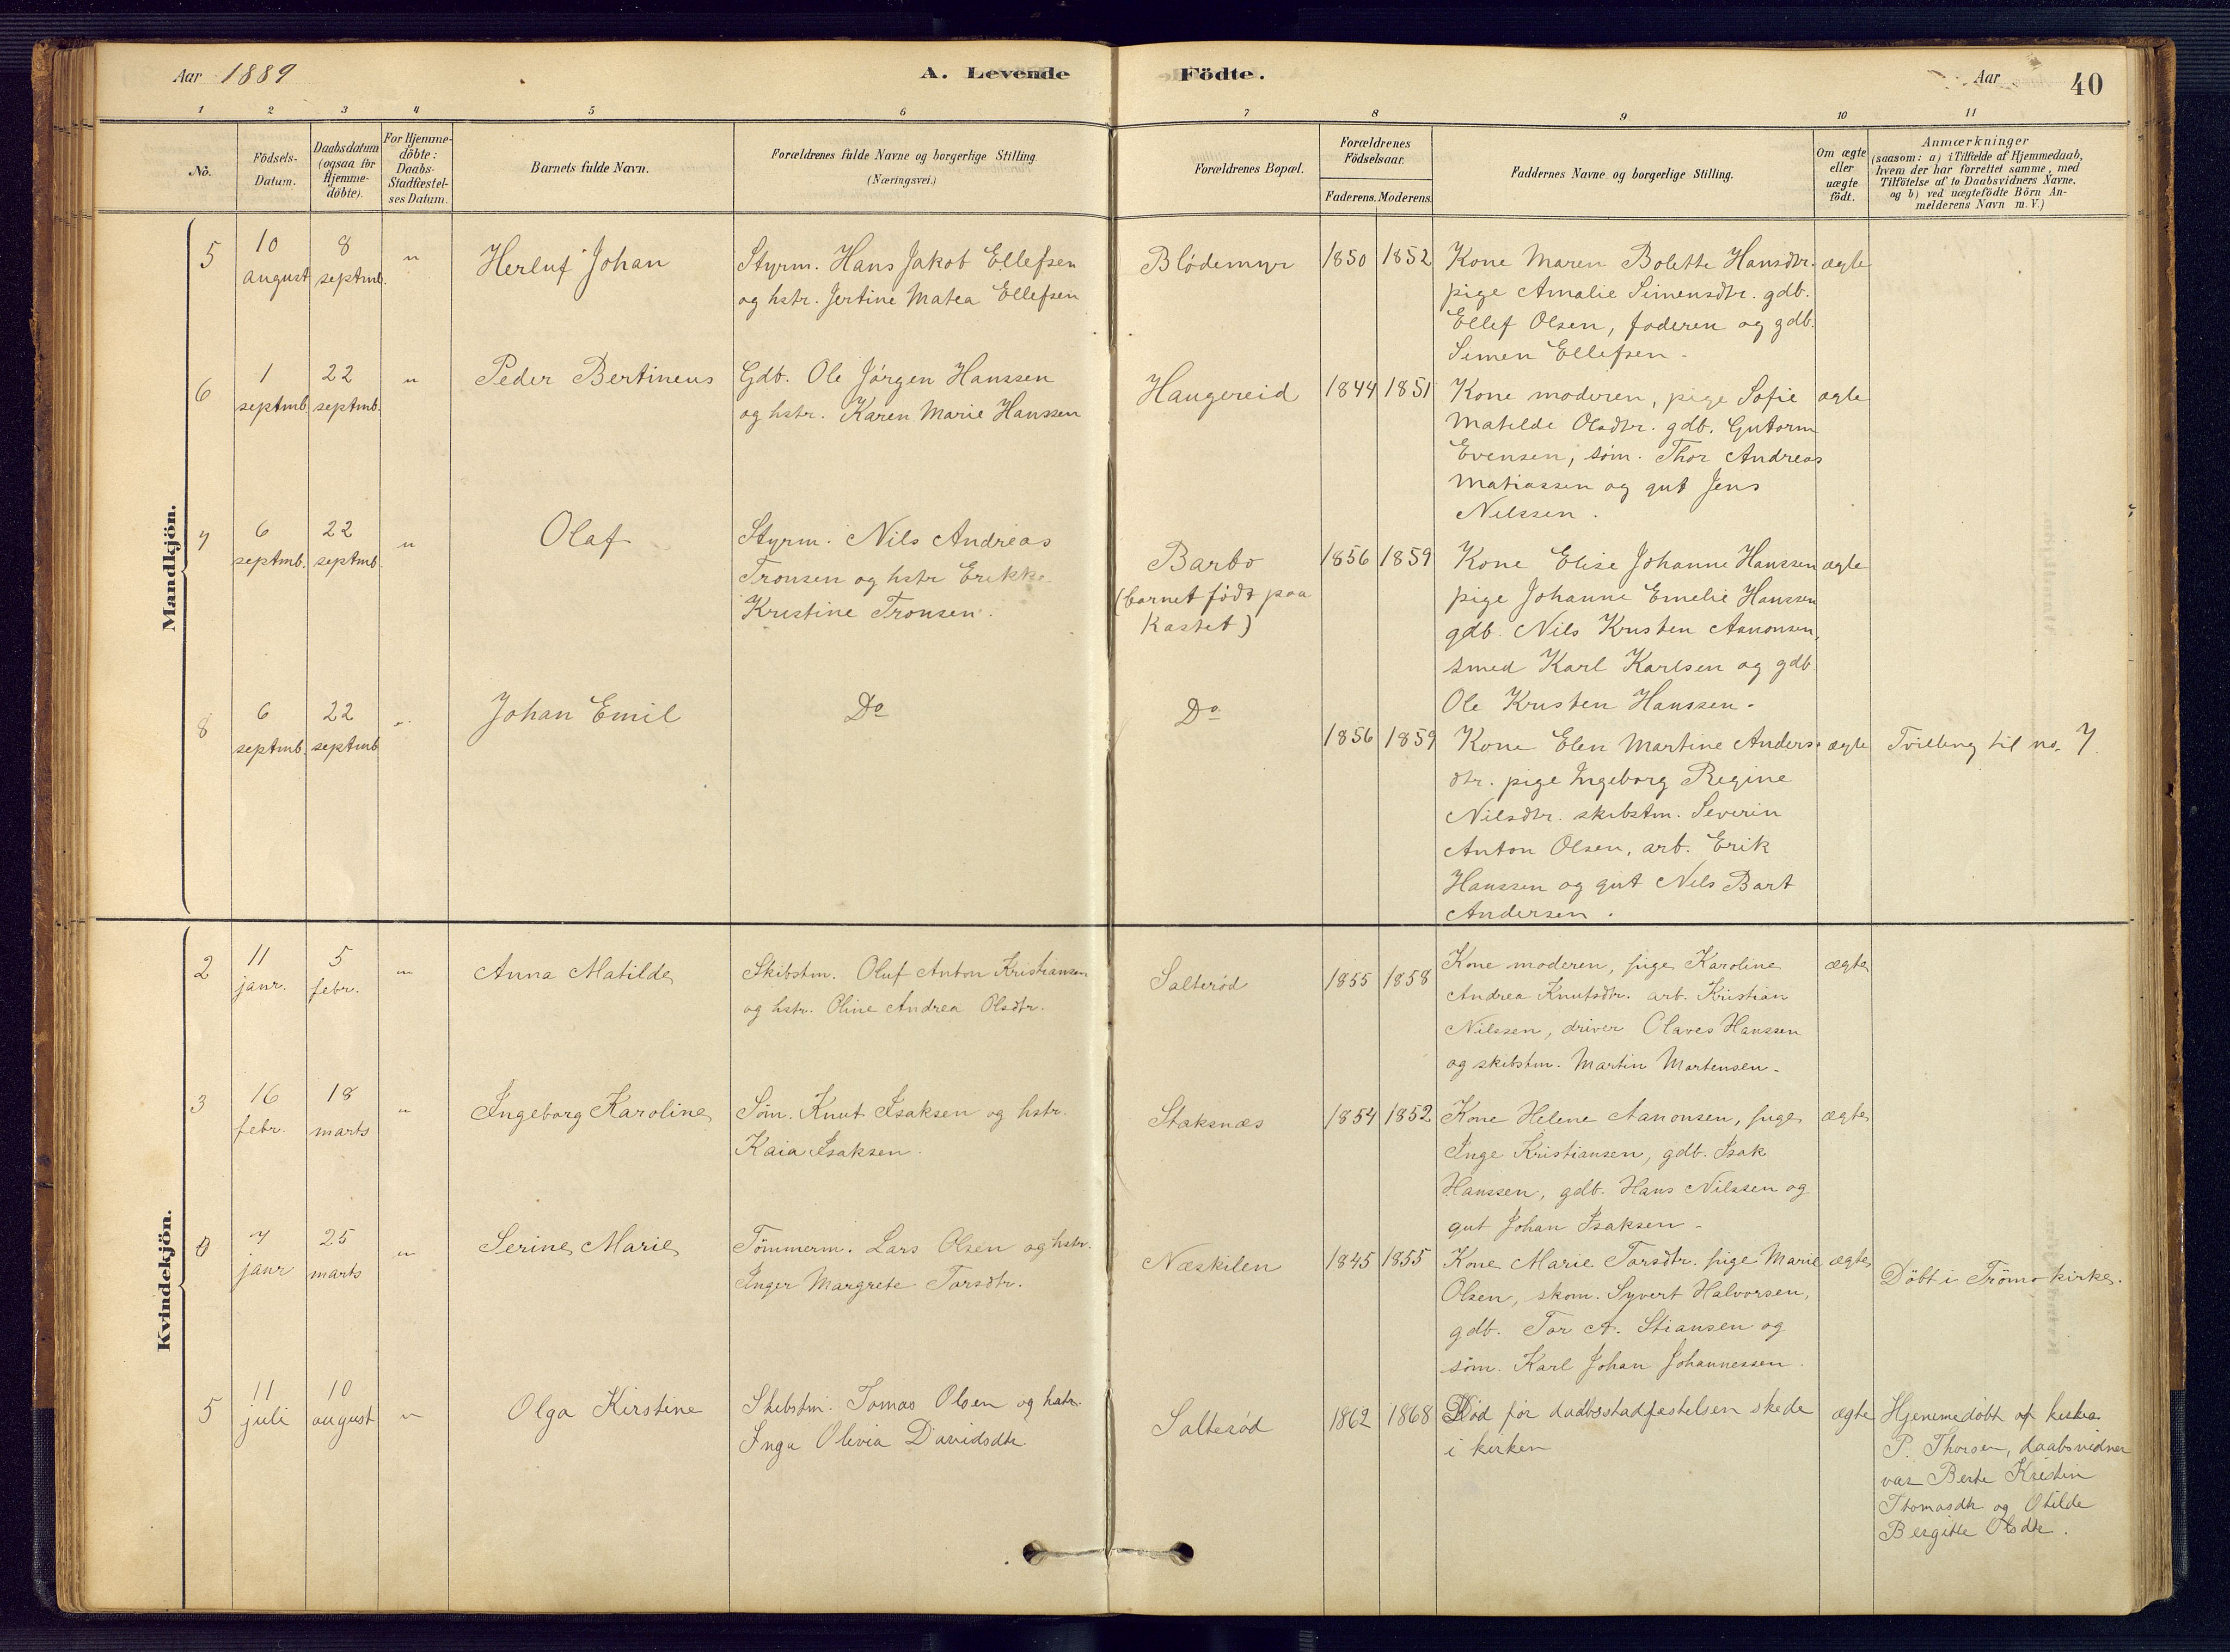 Aar 1889
A. Levende Födte.
Aar
40
1 2 3 4 5 6 7 8 9 10 11
No.
Födsels-
Datum.
Daabsdatum
(ogsaa for
Hjemme-
döbte).
For Hjemme-
döbte:
Daabs-
Stadfæstel-
ses Datum.
Barnets fulde Navn.
Forældrenes fulde Navne og borgerlige Stilling
(Næringsvei.)
Forældrenes Bopæl.
Forældrenes
Födselsaar.
Faderens. Moderens.
Faddernes Navne og borgerlige Stilling.
Om ægte
eller
uægte
födt.
Anmærkninger
(saasom: a) i Tilfælde af Hjemmedaab,
hvem der har forrettet samme, med
Tilföielse af to Daabsvidners Navne.
og b) ved uægtefödte Börn An-
melderens Navn m. V.)
Mandkjön.
5
10
august
8
septmb.
"
Herluf Johan
Styrm. Hans Jakob Ellefsen
og hstr. Jertine Matea Ellefsen
Blödemyr
1850
1852
Kone Maren Bolette Hansdtr.
pige Amalie Simensdtr. gdb.
Ellef Olsen, faderen og gdb.
Simen Ellefsen -
ægte
6
1
septmb
22
septmb.
"
Peder Bertineus
Gdb. Ole Jörgen Hanssen
og hstr. Karen Marie Hanssen
Haugereid
1844
1851
Kone moderen, pige Sofie
Matilde Olsdtr. gdb. Gutorm
Evensen, söm. Thor Andreas
Matiassen og gut Jens
Nilssen.
ægte
7
6
septmb.
22
septmb
"
Olaf
Styrm. Nils Andreas
Tronsen og hstr Erikke
Kristine Tronsen.
Barbo
(barnet födt paa
Kastet)
1856
1859
Kone Elise Johanne Hanssen
pige Johanne Emelie Hanssen
gdb. Nils Kristen Aanonsen,
smed Karl Karlsen og gdb.
Ole Kristen Hanssen -
ægte
8
6
septmb.
22
septmb
"
Johan Emil
Do
Do
1856
1859
Kone Elen Martine Anders-
dtr. pige Ingeborg Regine
Nilsdtr. skibstm. Severin
Anton Olsen, arb. Erik
Hanssen og gut Nils Bart
Andersen.
ægte
Tvilling til no. 7.
Kvindekjön.
2
11
janr.
5
febr.
"
Anna Matilde
Skibstm. Oluf Anton Kristiansen
og hstr. Oline Andrea Olsdtr.
Salteröd
1855
1858
Kone moderen, pige Karoline
Andrea Knutsdtr. arb. Kristian
Nilssen, driver Olaves Hanssen
og skibstm. Martin Mortensen -
ægte
3
16
febr.
18
marts
"
Ingeborg Karoline
Söm. Knut Isaksen og hstr.
Kaia Isaksen.
Staksnæs
1854
1852
Kone Helene Aanonsen, pige
Inge Kristiansen, gdb. Isak
Hanssen, gdb. Hans Nilssen og
gut Johan Isaksen -
ægte
0
7
janr
25
marts
"
Serine Marie
Tömmerm. Lars Olsen og hstr.
Inger Margrete Tarsdtr.
Næskilen
1845
1855
Kone Marie Tarsdtr. pige Marie
Olsen, skom. Syvert Halvorsen,
gdb. Tar A. Stiansen og
söm. Karl Johan Johannessen.
ægte
Döbt i Trömö kirke.
5
11
juli
10
august
"
Olga Kirstine
Skibstm. Tomas Olsen og hstr.
Inga Olivia Davidsdtr
Salteröd
1862
1868
Död för daabsstadfæstelsen skede
i kirken
ægte
Hjemmedöbt af
P. Thorsen, daabsvidner
var Berte Kristin
Thomasdtr og Otilde
Bergitte Olsdtr.